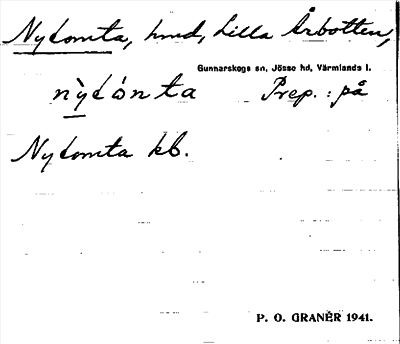 Nytomta, hmd, Lilla Årbotten,
Gunnarskogs sn, Jösse hd, Värmlands l.
nỳtón̥ta Prep. : på
Nytomta kb.
P. O. GRANÉR 1941.